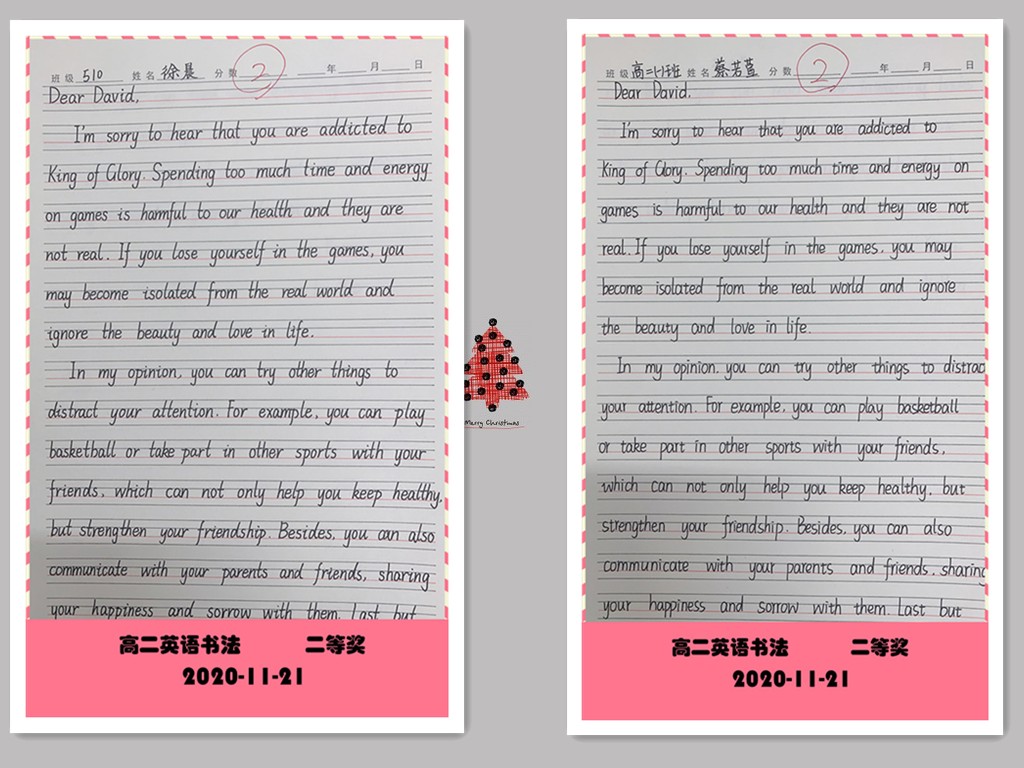 班级 510 姓名 徐晨 分数 2 年 月 日
Dear David,
I'm sorry to hear that you are addicted to
King of Glory. Spending too much time and energy
on games is harmful to our health and they are
not real. If you lose yourself in the games, you
may become isolated from the real world and
ignore the beauty and love in life.
In my opinion, you can try other things to
distract your attention. For example, you can play
basketball or take part in other sports with your
friends, which can not only help you keep healthy,
but strengthen your friendship. Besides, you can also
communicate with your parents and friends, sharing
your happiness and sorrow with them. Last but
高二英语书法 二等奖
2020-11-21
Merry Christmas
班级 高二(1)班 姓名 蔡若萱 分数 2 年 月 日
Dear David,
I'm sorry to hear that you are addicted to
King of Glory. Spending too much time and energy on
games is harmful to our health and they are not
real. If you lose yourself in the games, you may
become isolated from the real world and ignore
the beauty and love in life.
In my opinion, you can try other things to distrac
your attention. For example, you can play basketball
or take part in other sports with your friends,
which can not only help you keep healthy, but
strengthen your friendship. Besides, you can also
communicate with your parents and friends, sharing
your happiness and sorrow with them. Last but
高二英语书法 二等奖
2020-11-21